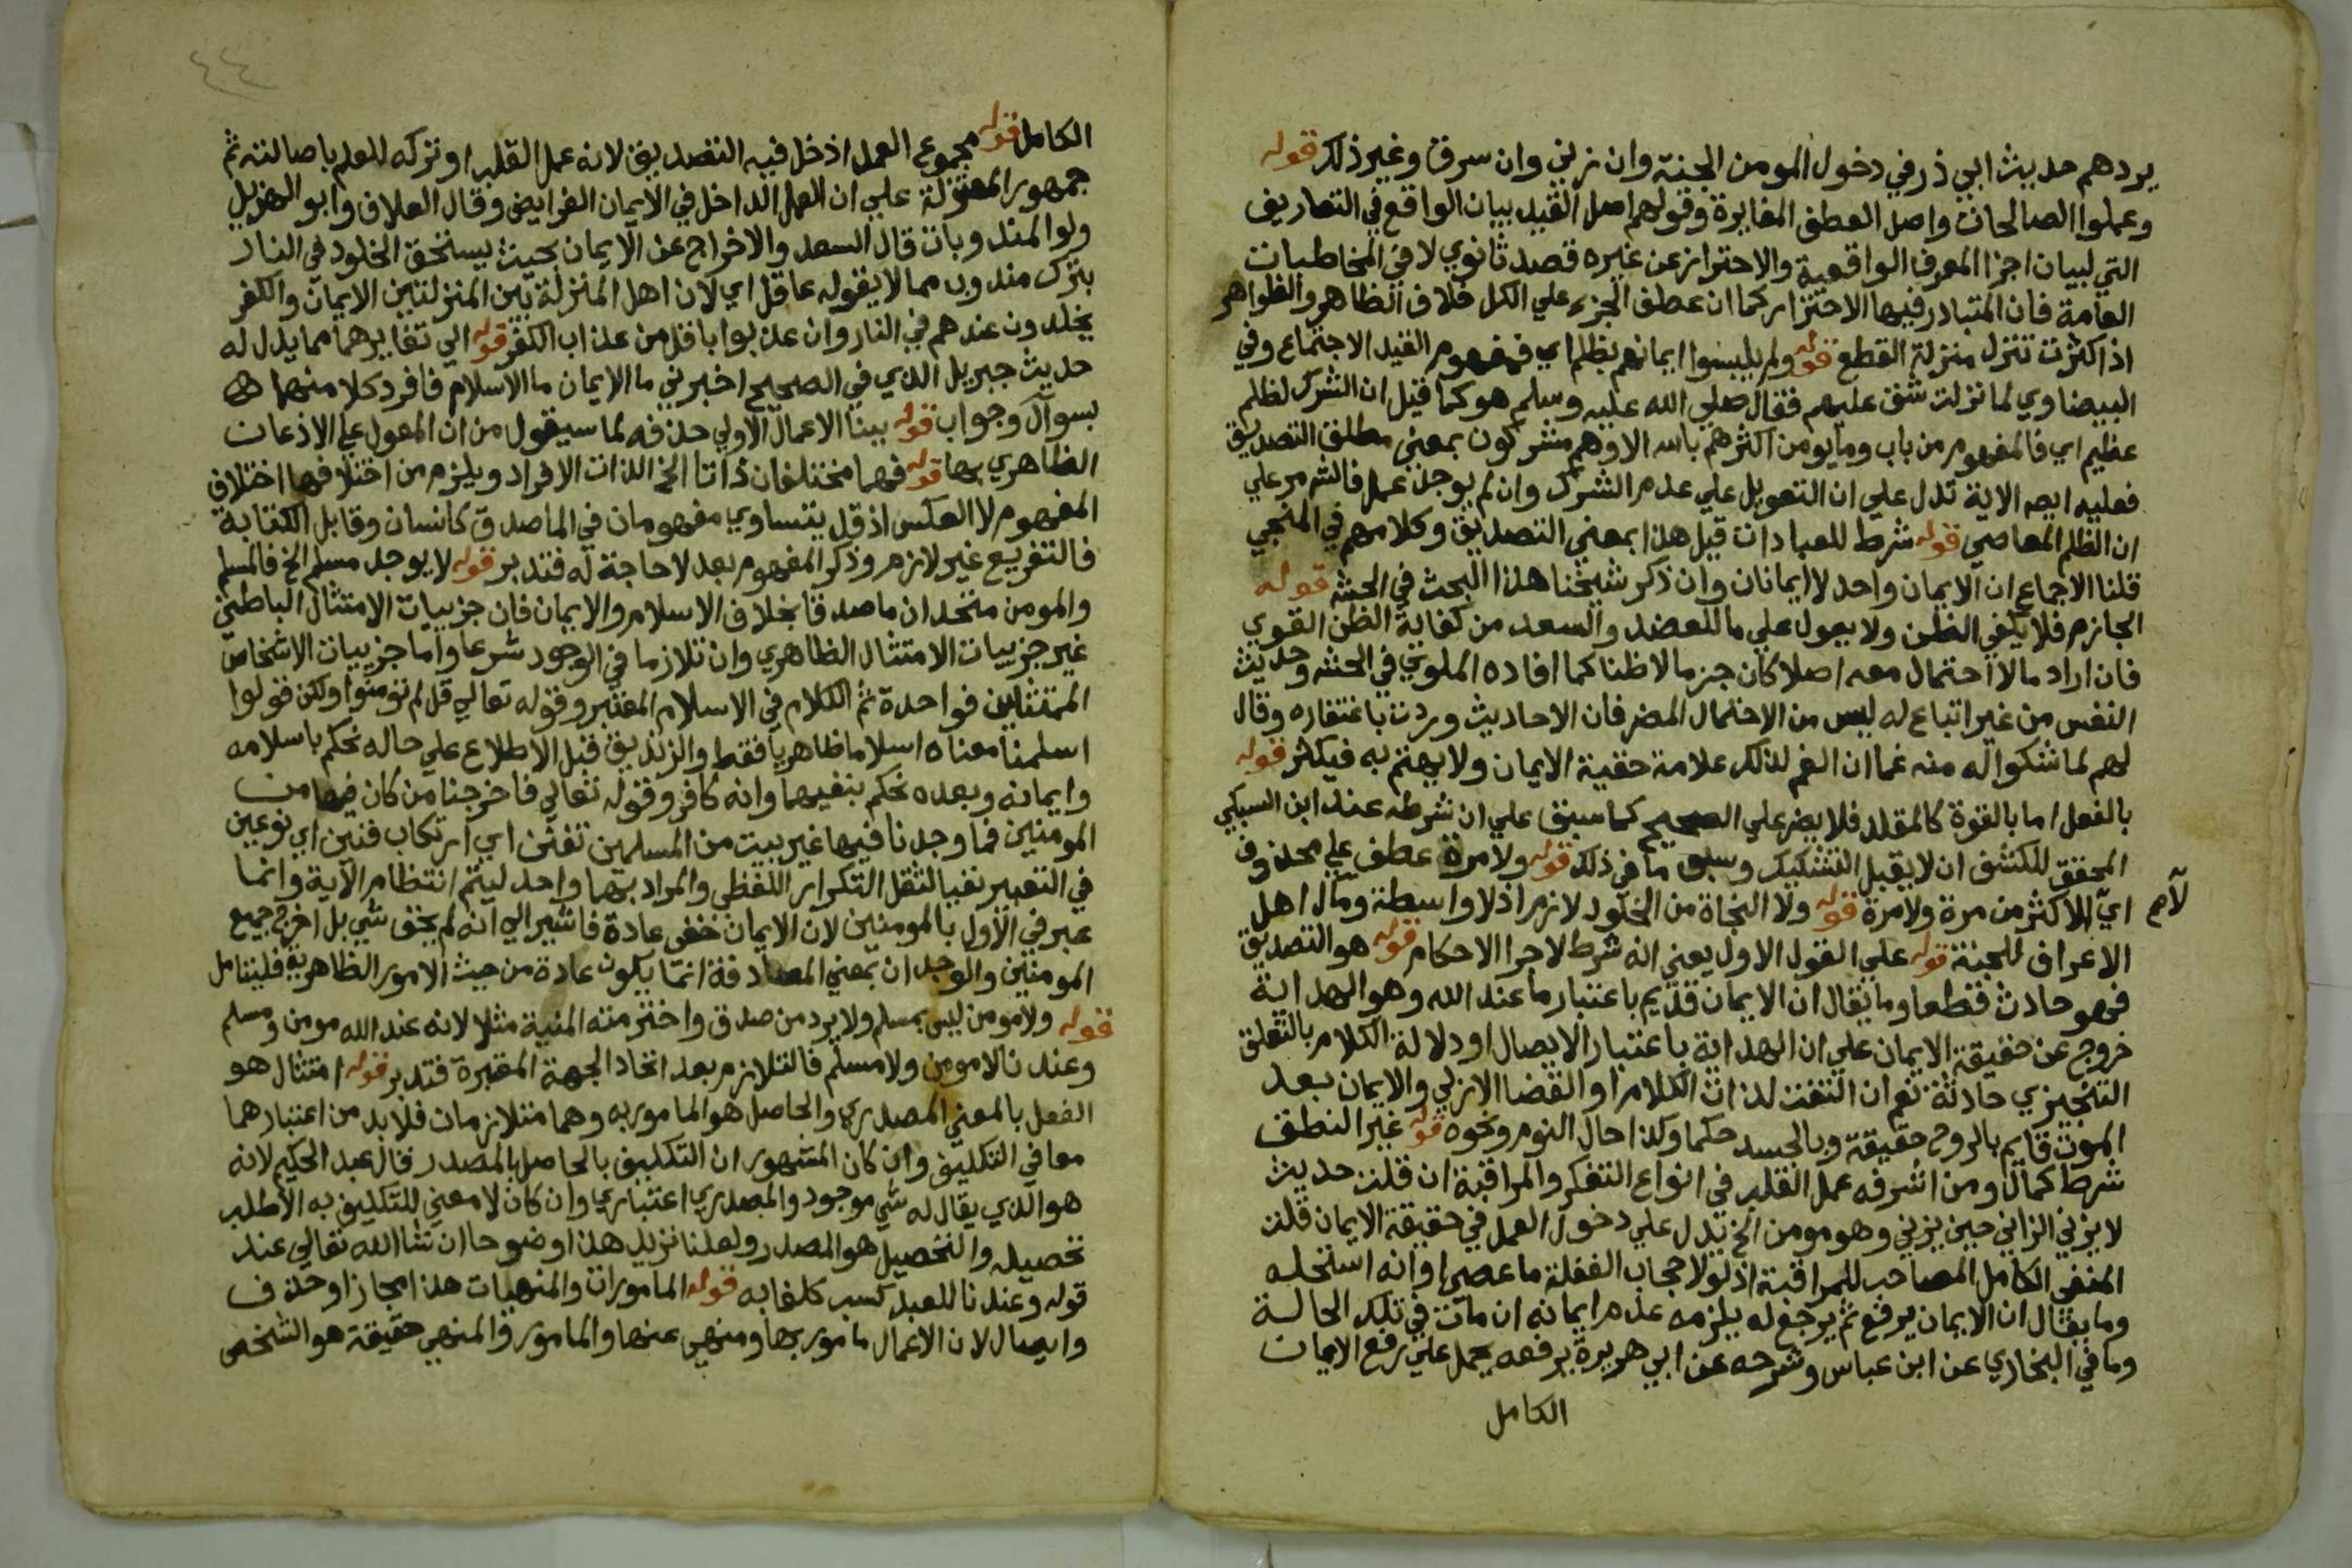 يردهم حديث ابي ذر في دخول المومن الجنة وان زني وان سرق وغير ذلك قوله
وعملوا الصالحات واصل العطف المغايرة وقولهم اصل القيد بيان الواقع في التعاريف
التي لبيان اجزا المعرف الواقعية والاحتراز عن غيره قصد ثانوي لا في المخاطبات
العامة فان المتبادر فيها الاحتراز كما ان عطف الجزء علي الكل خلاف الظاهر والظواهر
اذا كثرت تنزل منزلة القطع قوله ولم يلبسوا ايمانهم بظلم اي فمفهوم القيد الاجتماع وفي
البيضاوي لما نزلت شق عليهم فقال صلي الله عليه وسلم هو كما قيل ان الشرك لظلم
عظيم اي فالمفهوم من باب وما يومن اكثرهم بالله الا وهم مشركون بمعني مطلق التصديق
فعليه ايضا الاية تدل علي ان التعويل علي عدم الشرك وان لم يوجد عمل فالشر مر علي
ان الظلم المعاصي قوله شرط للعبادات قيل هذا بمعني التصديق وكلامهم في المنجي
قلنا الاجماع ان الايمان واحد لا ايمانان وان ذكر شيخنا هذا البحث في الحشه قوله
الجازم فلا يكفي الظن ولا يعول علي ما للعضد والسعد من كفاية الظن القوي
فان اراد ما لا احتمال معه اصلا كان جزما لا ظنا كما افاده الملوي في الحشه وحديث
النفس من غير اتباع له ليس من الاحتمال المضر فان الاحاديث وردت باغتفاره وقال
لهم لما شكوا له منه غما ان الغم لذلك علامة حقية الايمان ولا يهتم به فيكثر قوله
بالفعل اما بالقوة كالمقلد فلا يضر علي الصحيح كما سبق علي ان شرطه عند ابن السبكي
المحقق للكشف ان لا يقبل التشكيك وسبق ما في ذلك قوله ولا مرة عطف علي محذوف
اي لا اكثر من مرة ولا مرة قوله ولا النجاة من الخلود لازم اذ لا واسطة ومآل اهل
لآم
الاعراف للجنة قوله علي القول الاول يعني انه شرط لاجرا الاحكام قوله هو التصديق
فهو حادث قطعا وما يقال ان الايمان قديم باعتبار ما عند الله وهو الهداية
خروج عن حقيقة الايمان علي ان الهداية باعتبار الايصال او دلالة الكلام بالتعلق
التنجيزي حادثة نعم ان التفت لذات الكلام او القضا الازلي والايمان بعد
الموت قايم بالروح حقيقة وبالجسد حكما وكذا حال النوم ونحوه قوله غير النطق
شرط كمال ومن اشرفه عمل القلب في انواع التفكر والمراقبة ان قلت حديث
لا يزني الزاني حين يزني وهو مومن الخ يدل علي دخول العمل في حقيقة الايمان قلت
المنفي الكامل المصاحب للمراقبة اذ لولا حجاب الغفلة ما عصي او انه استحله
وما يقال ان الايمان يرفع ثم يرجع له يلزمه عدم ايمانه ان مات في تلك الحالة
وما في البخاري عن ابن عباس وشرحه عن ابي هريرة يرفعه يحمل علي رفع الايمان
الكامل
٤٤
الكامل قوله مجموع العمل ادخل فيه التصديق لانه عمل القلب او تركه للعلم باصالته ثم
جمهور المعتزلة علي ان العمل الداخل في الايمان الفرايض وقال العلاف وابو الهزيل
ولو المندوبات قال السعد والاخراج عن الايمان بحيث يستحق الخلود في النار
بترك مندوب مما لا يقوله عاقل اي لان اهل المنزلة بين المنزلتين الايمان والكفر
يخلدون عندهم في النار وان عذبوا باقل من عذاب الكفر قوله الي تغايرهما مما يدل له
حديث جبريل الذي في الصحيح اخبرني ما الايمان ما الاسلام فافرد كلا منهما
بسوال وجواب قوله بينا الاعمال الاولي حذفه لما سيقول من ان المعول علي الاذعان
الظاهري بها قوله فهما مختلفان ذاتا الخ الذات الافراد ويلزم من اختلافها اختلاف
المفهوم لا العكس اذ قد يتساوي مفهومان في الماصدق كانسان وقابل الكتابة
فالتفريع غير لازم وذكر المفهوم بعد لا حاجة له فتدبر قوله لا يوجد مسلم الخ فالمسلم
والمومن متحدان ماصدقا بخلاف الاسلام والايمان فان جزييات الامتثال الباطني
غير جزييات الامتثال الظاهري وان تلازما في الوجود شرعا واما جزييات الاشخاص
الممتثلين فواحدة ثم الكلام في الاسلام المعتبر وقوله تعالي قل لم تومنوا ولكن قولوا
اسلمنا معناه اسلاما ظاهريا فقط والزنديق قبل الاطلاع علي حاله نحكم باسلامه
وايمانه وبعده نحكم بنفيهما وانه كافر وقوله تعالي فاخرجنا من كان فيها من
المومنين فما وجدنا فيها غير بيت من المسلمين تفنن اي ارتكاب فنين اي نوعين
في التعبير نفيا لثقل التكرار اللفظي والمراد بهما واحد ليتم انتظام الآية وانما
عبر في الاول بالمومنين لان الايمان خفي عادة فاشير الي انه لم يخف شي بل اخرج جميع
المومنين والوجدان بمعني المصادفة انما يكون عادة من حيث الامور الظاهرية فليتامل
قوله ولا مومن ليس بمسلم ولا يرد من صدق واخترمته المنية مثلا لانه عند الله مومن ومسلم
وعندنا لا مومن ولا مسلم فالتلازم بعد اتحاد الجهة المعتبرة فتدبر قوله امتثال هو
الفعل بالمعني المصدري والحاصل هو المامور به وهما متلازمان فلا بد من اعتبارهما
معا في التكليف وان كان المشهور ان التكليف بالحاصل بالمصدر قال عبد الحكيم لانه
هو الذي يقال له شي موجود والمصدري اعتباري وان كان لا معني للتكليف به الا طلب
تحصيله والتحصيل هو المصدر ولعلنا نزيد هذا وضوحا ان شا الله تعالي عند
قوله وعندنا للعبد كسب كلفا به قوله المامورات والمنهيات هذا مجاز او حذف
وايصال لان الاعمال مامور بها ومنهي عنها والمامور والمنهي حقيقة هو الشخص